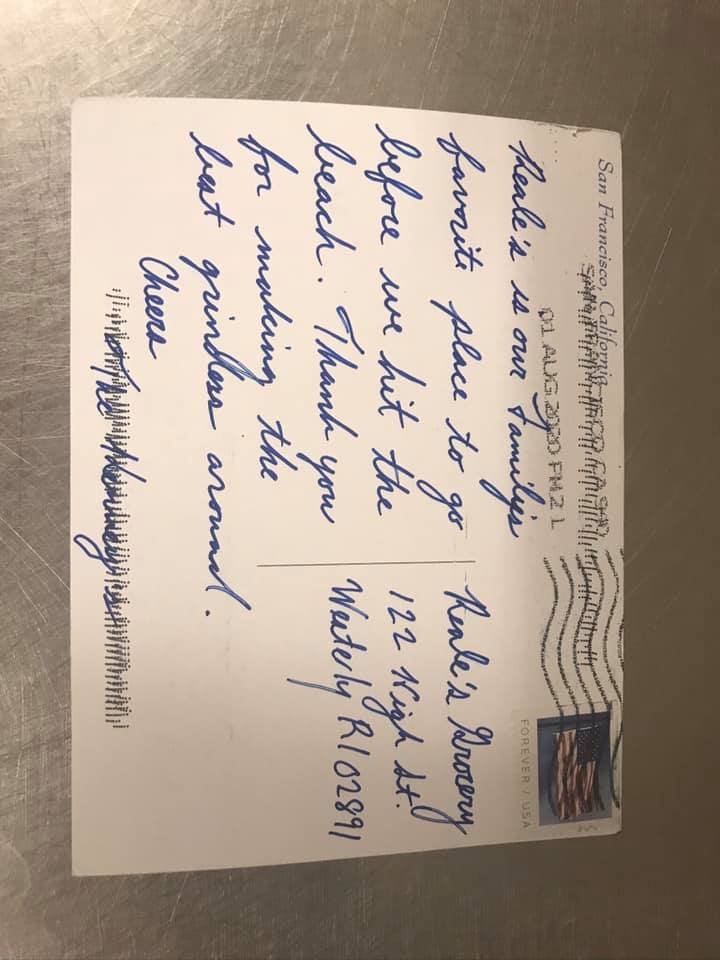 San Francisco, California
SAN FRANCISCO CA 940
01 AUG 2020 PM 2 L
FOREVER / USA
Reale's is our families
favorite place to go
before we hit the
beach. Thank you
for making the
best grinders around.
Cheers
The
Reale's Grocery
122 High St.
Westerly RI 02891